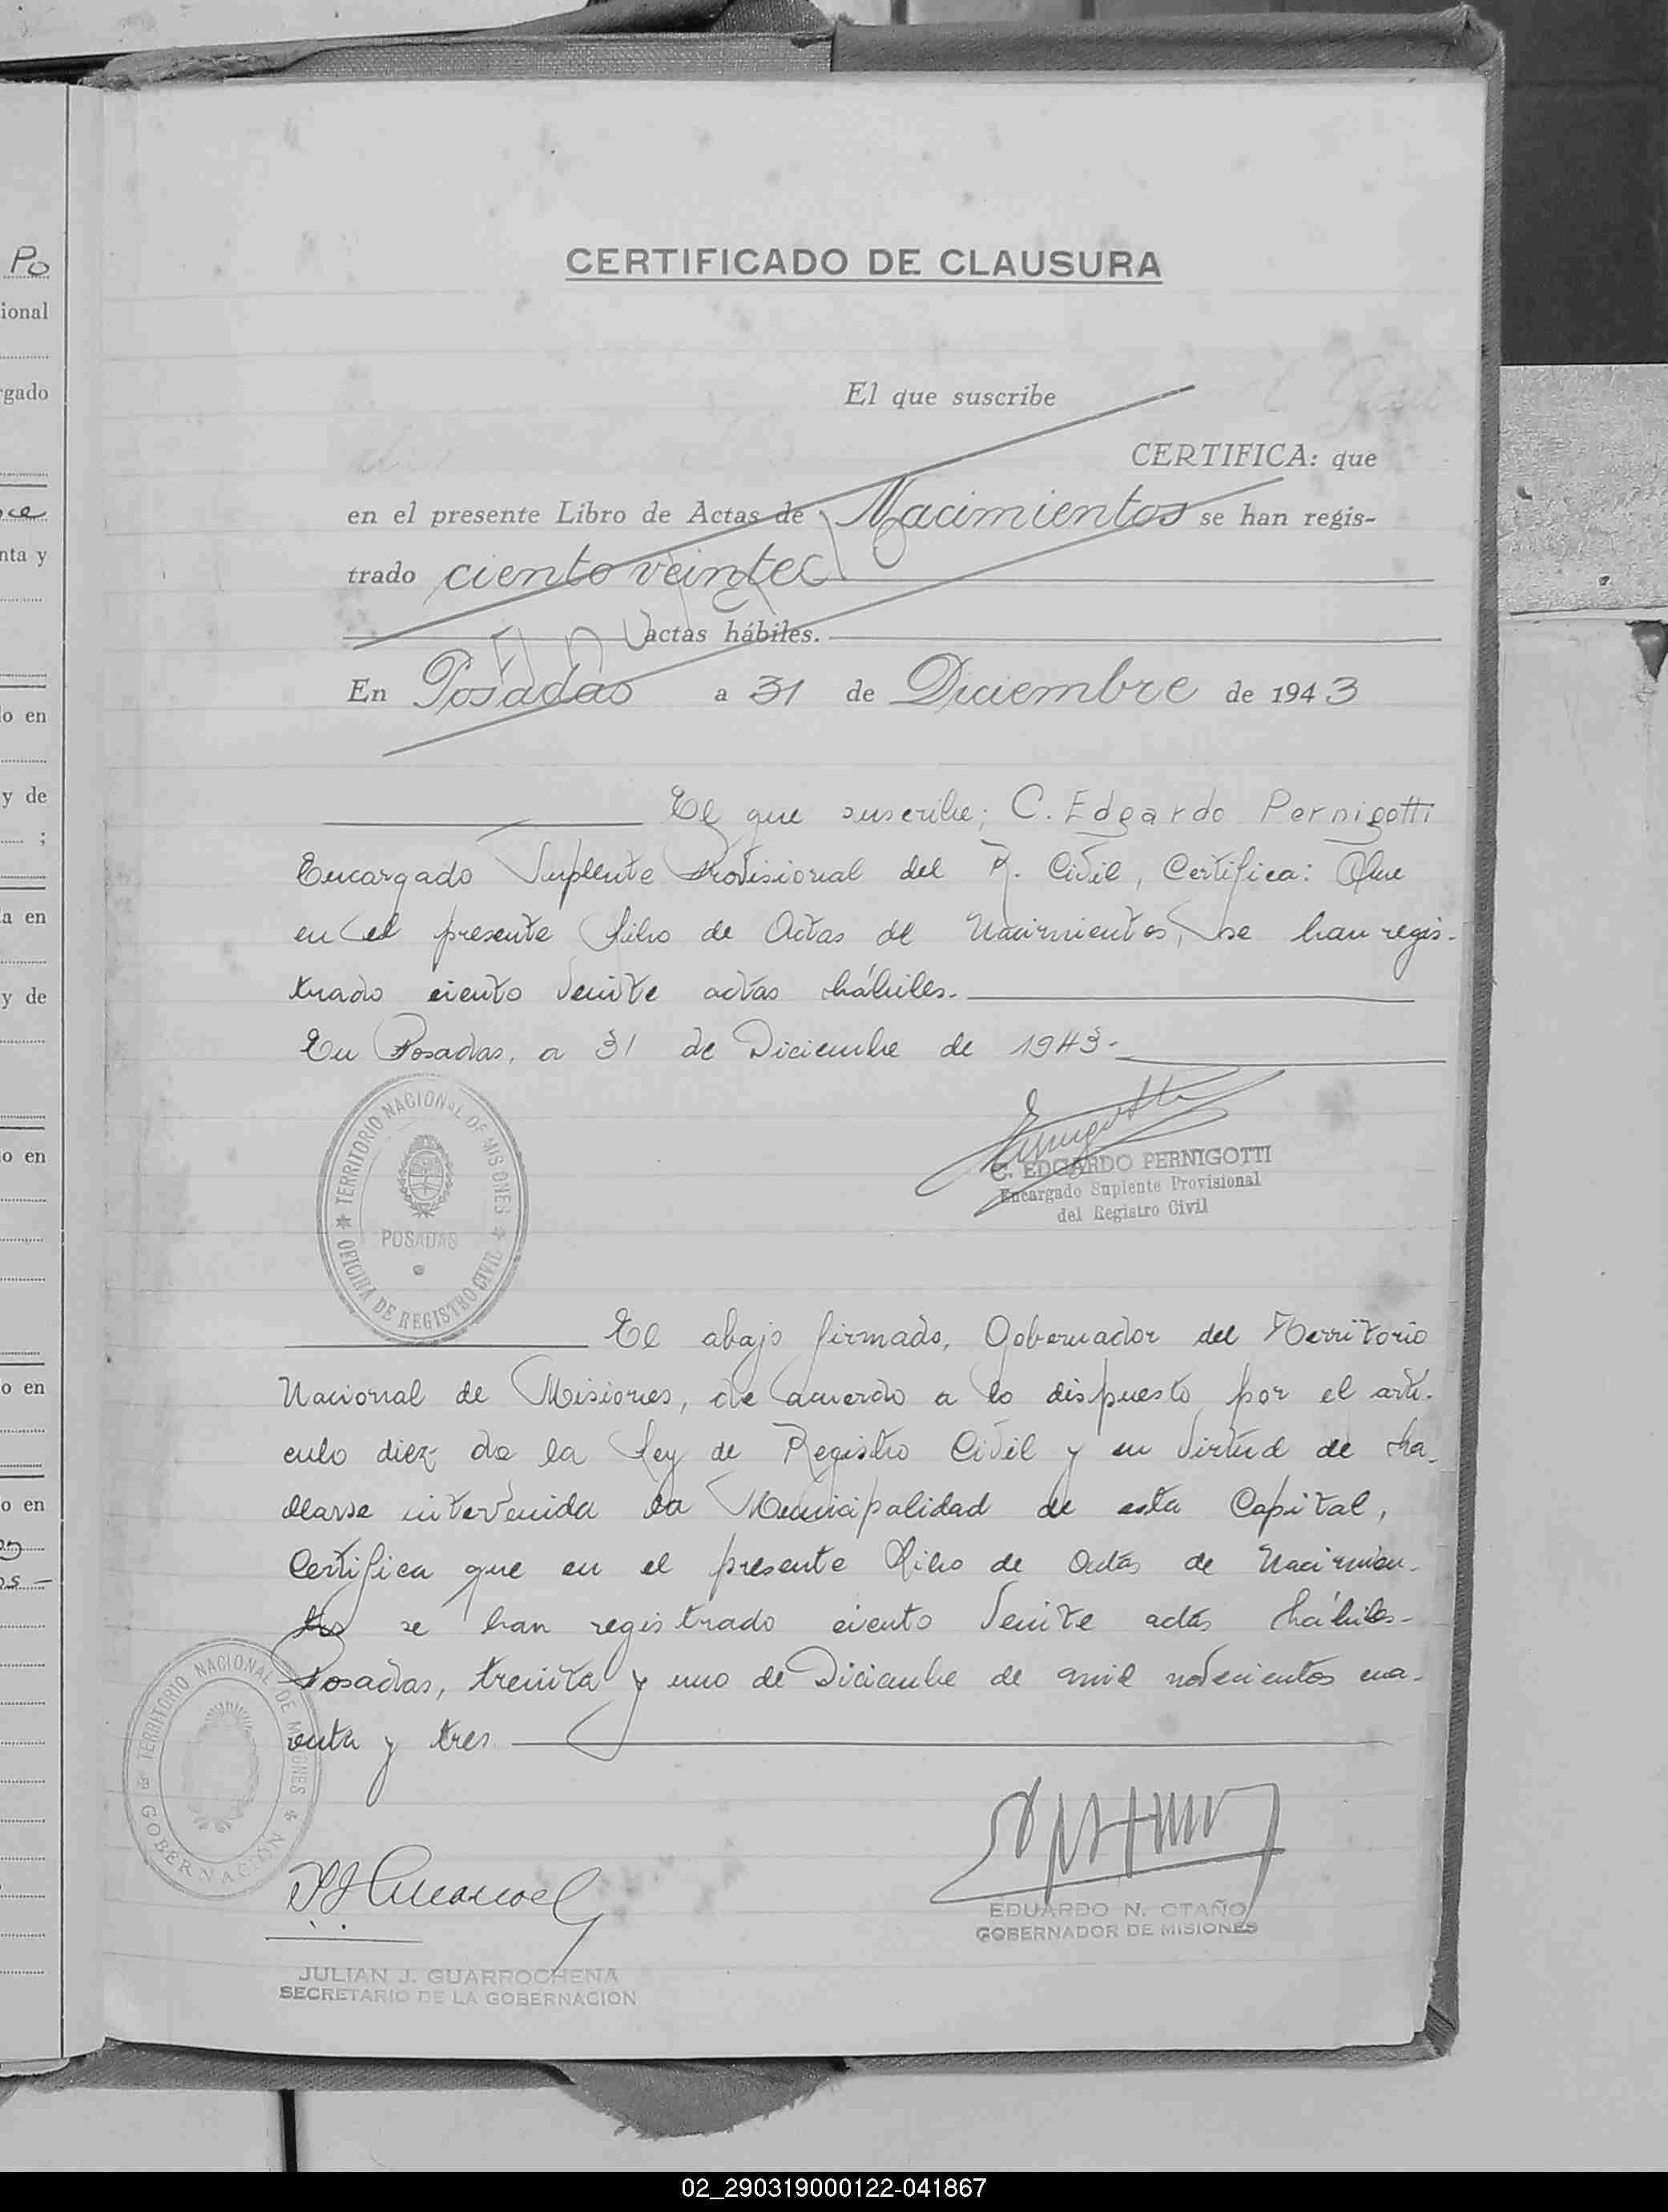 CERTIFICADO DE CLAUSURA
El que suscribe
CERTIFICA: que
en el presente Libro de Actas de Nacimientos se han regis-
trado ciento veinte
actas hábiles.
En Posadas a 31 de Diciembre de 1943
El que suscribe; C. Edgardo Pernigotti
Encargado Suplente Provisional del R. Civil, Certifica: Que
en el presente Libro de Actas de Nacimientos, se han regis-
trado ciento veinte actas hábiles.
En Posadas, a 31 de Diciembre de 1943.
TERRITORIO NACIONAL DE MISIONES
POSADAS
OFICINA DE REGISTRO CIVIL
C. EDGARDO PERNIGOTTI
Encargado Suplente Provisional
del Registro Civil
El abajo firmado, Gobernador del Territorio
Nacional de Misiones, de acuerdo a lo dispuesto por el artí-
culo diez de la Ley de Registro Civil y en virtud de ha-
llarse intervenida la Municipalidad de esta Capital,
Certifica que en el presente Libro de Actas de Nacimien-
tos se han registrado ciento veinte actas hábiles-
Posadas, treinta y uno de Diciembre de mil novecientos cua-
renta y tres
TERRITORIO NACIONAL DE MISIONES
GOBERNACIÓN
EDUARDO N. OTAÑO
GOBERNADOR DE MISIONES
JULIAN J. GUARROCHENA
SECRETARIO DE LA GOBERNACION
Po
ional
rgado
nta y
o en
y de
a en
y de
o en
o en
o en
02_290319000122-041867